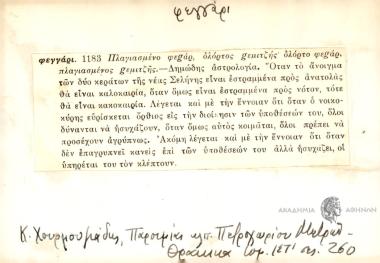 φεγγάρι
φεγγάρι. 1183 Πλαγιασμένο φεgάρ, ὁλόρτος gεμιτζής· ὁλόρτο φεgάρ,
πλαγιασμένος gεμιτζής.—Δημώδης ἀστρολογία. Ὅταν τὸ ἄνοιγμα
τῶν δύο κεράτων τῆς νέας Σελήνης εἶναι ἐστραμμένα πρὸς ἀνατολὰς
θὰ εἶναι καλοκαιρία, ὅταν ὅμως εἶναι ἐστραμμένα πρὸς νότον, τότε
θὰ εἶναι κακοκαιρία. Λέγεται καὶ μὲ τὴν ἔννοιαν ὅτι ὅταν ὁ νοικο-
κύρης εὑρίσκεται ὄρθιος εἰς τὴν διοίκησιν τῶν ὑποθέσεών του, ὅλοι
δύνανται νὰ ἡσυχάζουν, ὅταν ὅμως αὐτὸς κοιμᾶται, ὅλοι πρέπει νὰ
προσέχουν ἀγρύπνως. Ἀκόμη λέγεται καὶ μὲ τὴν ἔννοιαν ὅτι ὅταν
δὲν ἐπαγρυπνεῖ κανεὶς ἐπὶ τῶν ὑποθέσεών του ἀλλὰ ἡσυχάζει, οἱ
ὑπηρέται του τὸν κλέπτουν.
ΑΚΑΔΗΜΙΑ ΑΘΗΝΩΝ
Κ. Χουρμουζιάδης, Παροιμίαι κλπ. Πετροχωρίου Μετρῶν
Θρακικά τομ. ΙΣΤ' σ. 260